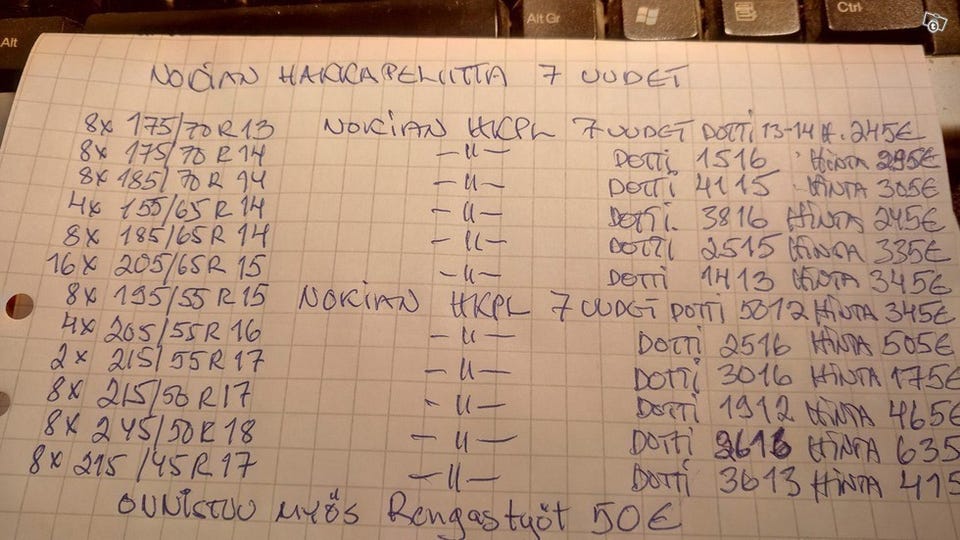 NOKIAN HAKKAPELIITTA 7 UUDET
8x 175/70 R 13 NOKIAN HKPL 7 UUDET DOTTI 13-14 H. 245€
8x 175/70 R 14 -11- DOTTI 1516 HINTA 295€
8x 185/70 R 14 -11- DOTTI 4115 HINTA 305€
4x 155/65 R 14 -11- DOTTI. 3816 HINTA 245€
8x 185/65 R 14 -11- DOTTI 2515 HINTA 335€
16x 205/65 R 15 -11- DOTTI 1413 HINTA 345€
8x 195/55 R 15 NOKIAN HKPL 7 UUDET DOTTI 5012 HINTA 345€
4x 205/55 R 16 -11- DOTTI 2516 HINTA 505€
2x 215/55 R 17 -11- DOTTI 3016 HINTA 175€
8x 215/50 R 17 -11- DOTTI 1912 HINTA 465€
8x 245/50 R 18 -11- DOTTI HINTA 635
8x 215/45 R 17 -11- DOTTI 3613 HINTA 415
ONNISTUU MYÖS Rengastyöt 50€
Alt
Alt Gr
Ctrl